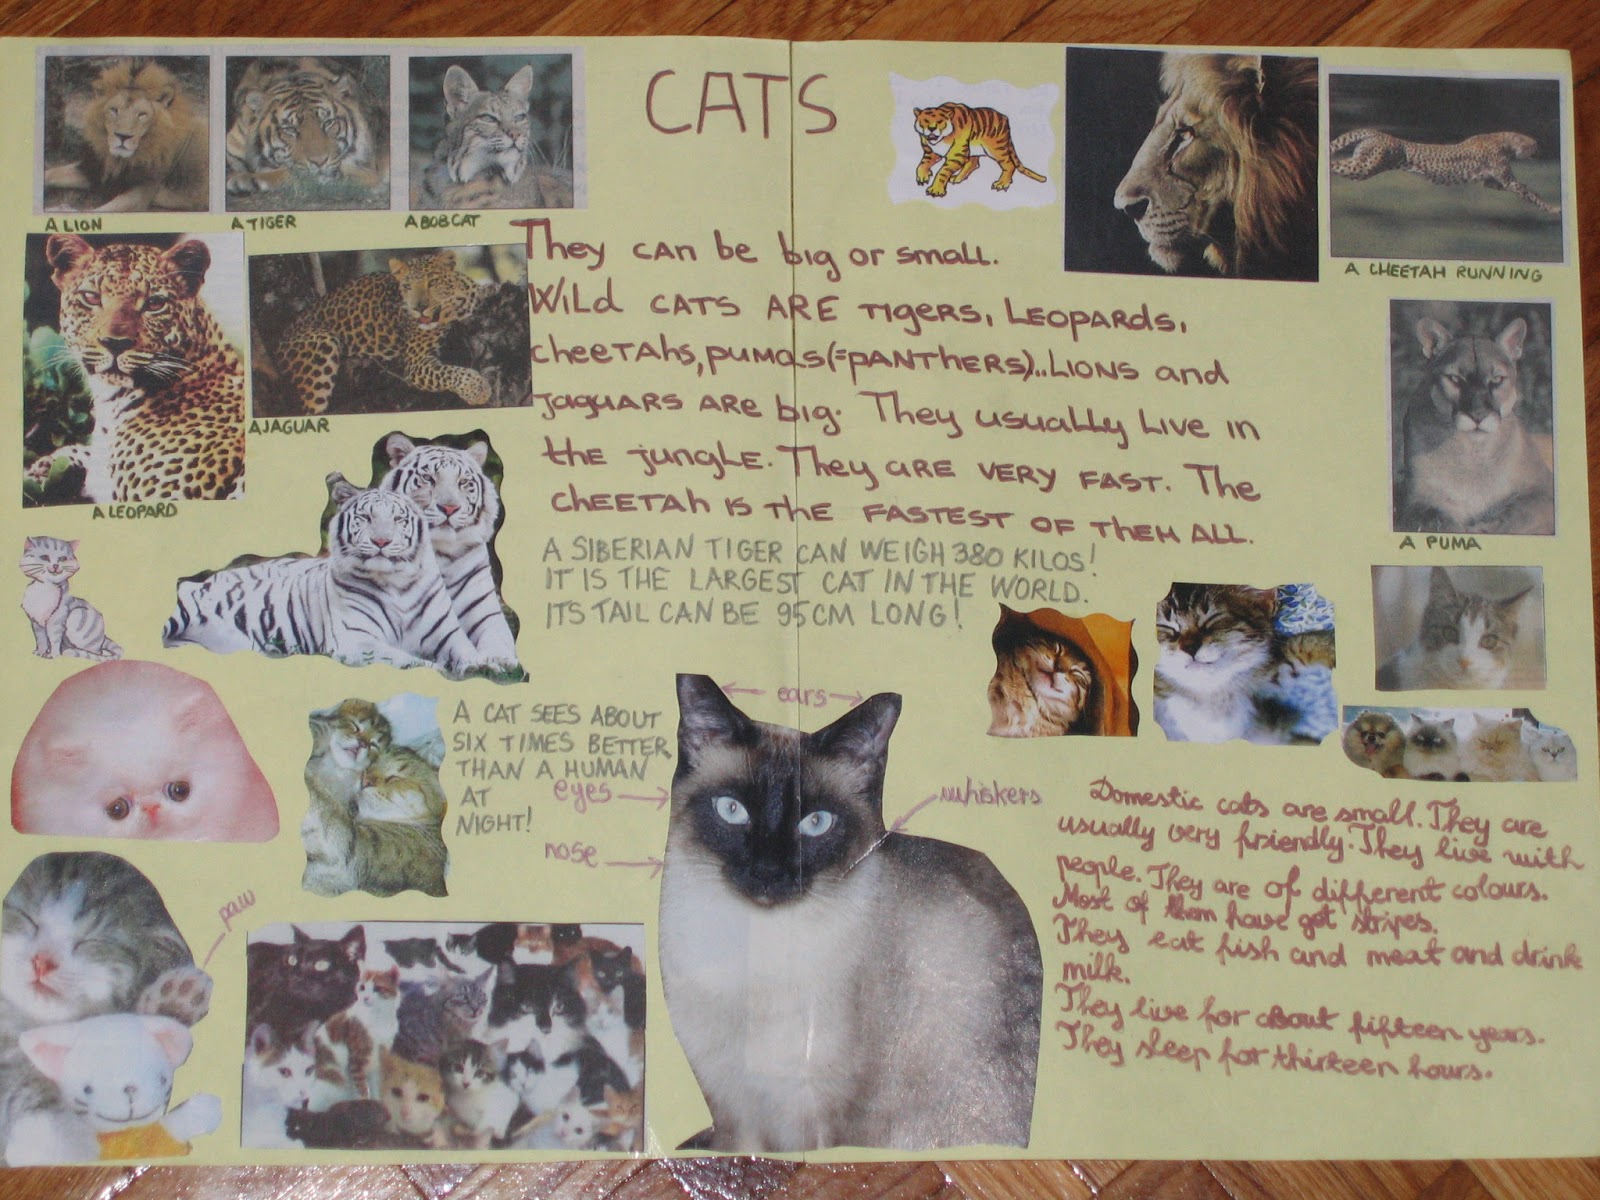 CATS
A LION
A TIGER
A BOBCAT
A CHEETAH RUNNING
A LEOPARD
A JAGUAR
A PUMA
They can be big or small.
Wild CATS ARE TIgers, Leopards,
cheetahs, pumas (=panthers)... Lions and
jaguars are big. They usually live in
the jungle. They are very fast. The
cheetah is the fastest of them all.
A SIBERIAN TIGER CAN WEIGH 380 KILOS!
IT IS THE LARGEST CAT IN THE WORLD.
ITS TAIL CAN BE 95CM LONG!
A CAT SEES ABOUT
SIX TIMES BETTER
THAN A HUMAN
AT
NIGHT!
ears
eyes
whiskers
nose
paw
Domestic cats are small. They are
usually very friendly. They live with
people. They are of different colours.
Most of them have got stripes.
They eat fish and meat and drink
milk.
They live for about fifteen years.
They sleep for thirteen hours.